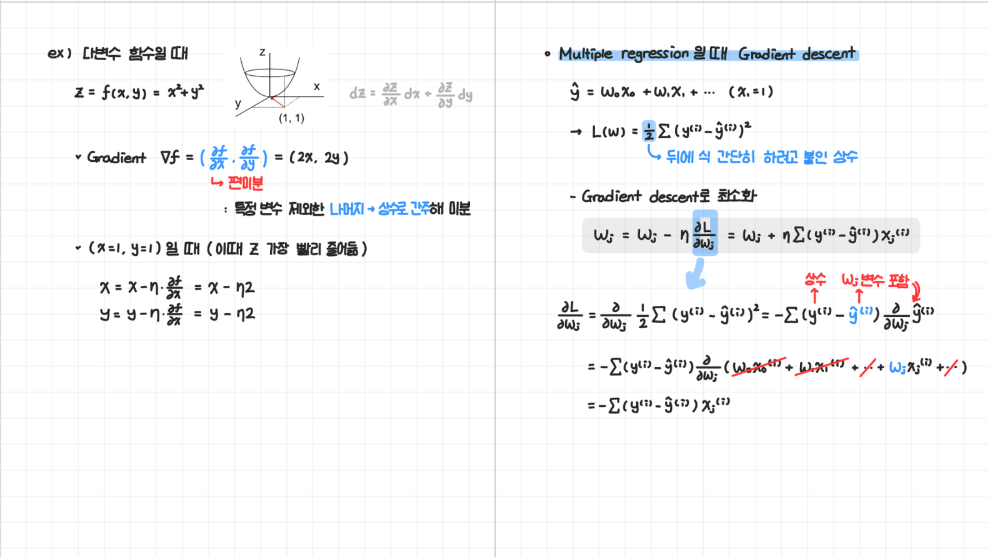 ex) 다변수 함수일 때
z = f(x, y) = x²+y²
z
x
y
(1, 1)
dz = ∂z/∂x dx + ∂z/∂y dy
✓ Gradient ∇f = (∂f/∂x, ∂f/∂y) = (2x, 2y)
↳ 편미분
: 특정 변수 제외한 나머지 → 상수로 간주해 미분
✓ (x=1, y=1) 일 때 (이때 z 가장 빨리 줄어듦)
x = x-η·∂f/∂x = x - η2
y = y-η·∂f/∂y = y - η2
∘ Multiple regression 일 때 Gradient descent
ŷ = w₀x₀ + w₁x₁ + ⋯ (x₁=1)
→ L(w) = 1/2 ∑ (y⁽ⁱ⁾-ŷ⁽ⁱ⁾)²
↳ 뒤에 식 간단히 하려고 붙인 상수
- Gradient descent로 최소화
wⱼ = wⱼ - η ∂L/∂wⱼ = wⱼ + η∑(y⁽ⁱ⁾-ŷ⁽ⁱ⁾)xⱼ⁽ⁱ⁾
상수 wⱼ변수 포함
∂L/∂wⱼ = ∂/∂wⱼ 1/2 ∑ (y⁽ⁱ⁾-ŷ⁽ⁱ⁾)² = -∑(y⁽ⁱ⁾-ŷ⁽ⁱ⁾) ∂/∂wⱼ ŷ⁽ⁱ⁾
= -∑(y⁽ⁱ⁾-ŷ⁽ⁱ⁾) ∂/∂wⱼ (w₀x₀⁽ⁱ⁾ + w₁x₁⁽ⁱ⁾ + ⋯ + wⱼxⱼ⁽ⁱ⁾ + ⋯)
= -∑(y⁽ⁱ⁾-ŷ⁽ⁱ⁾) xⱼ⁽ⁱ⁾